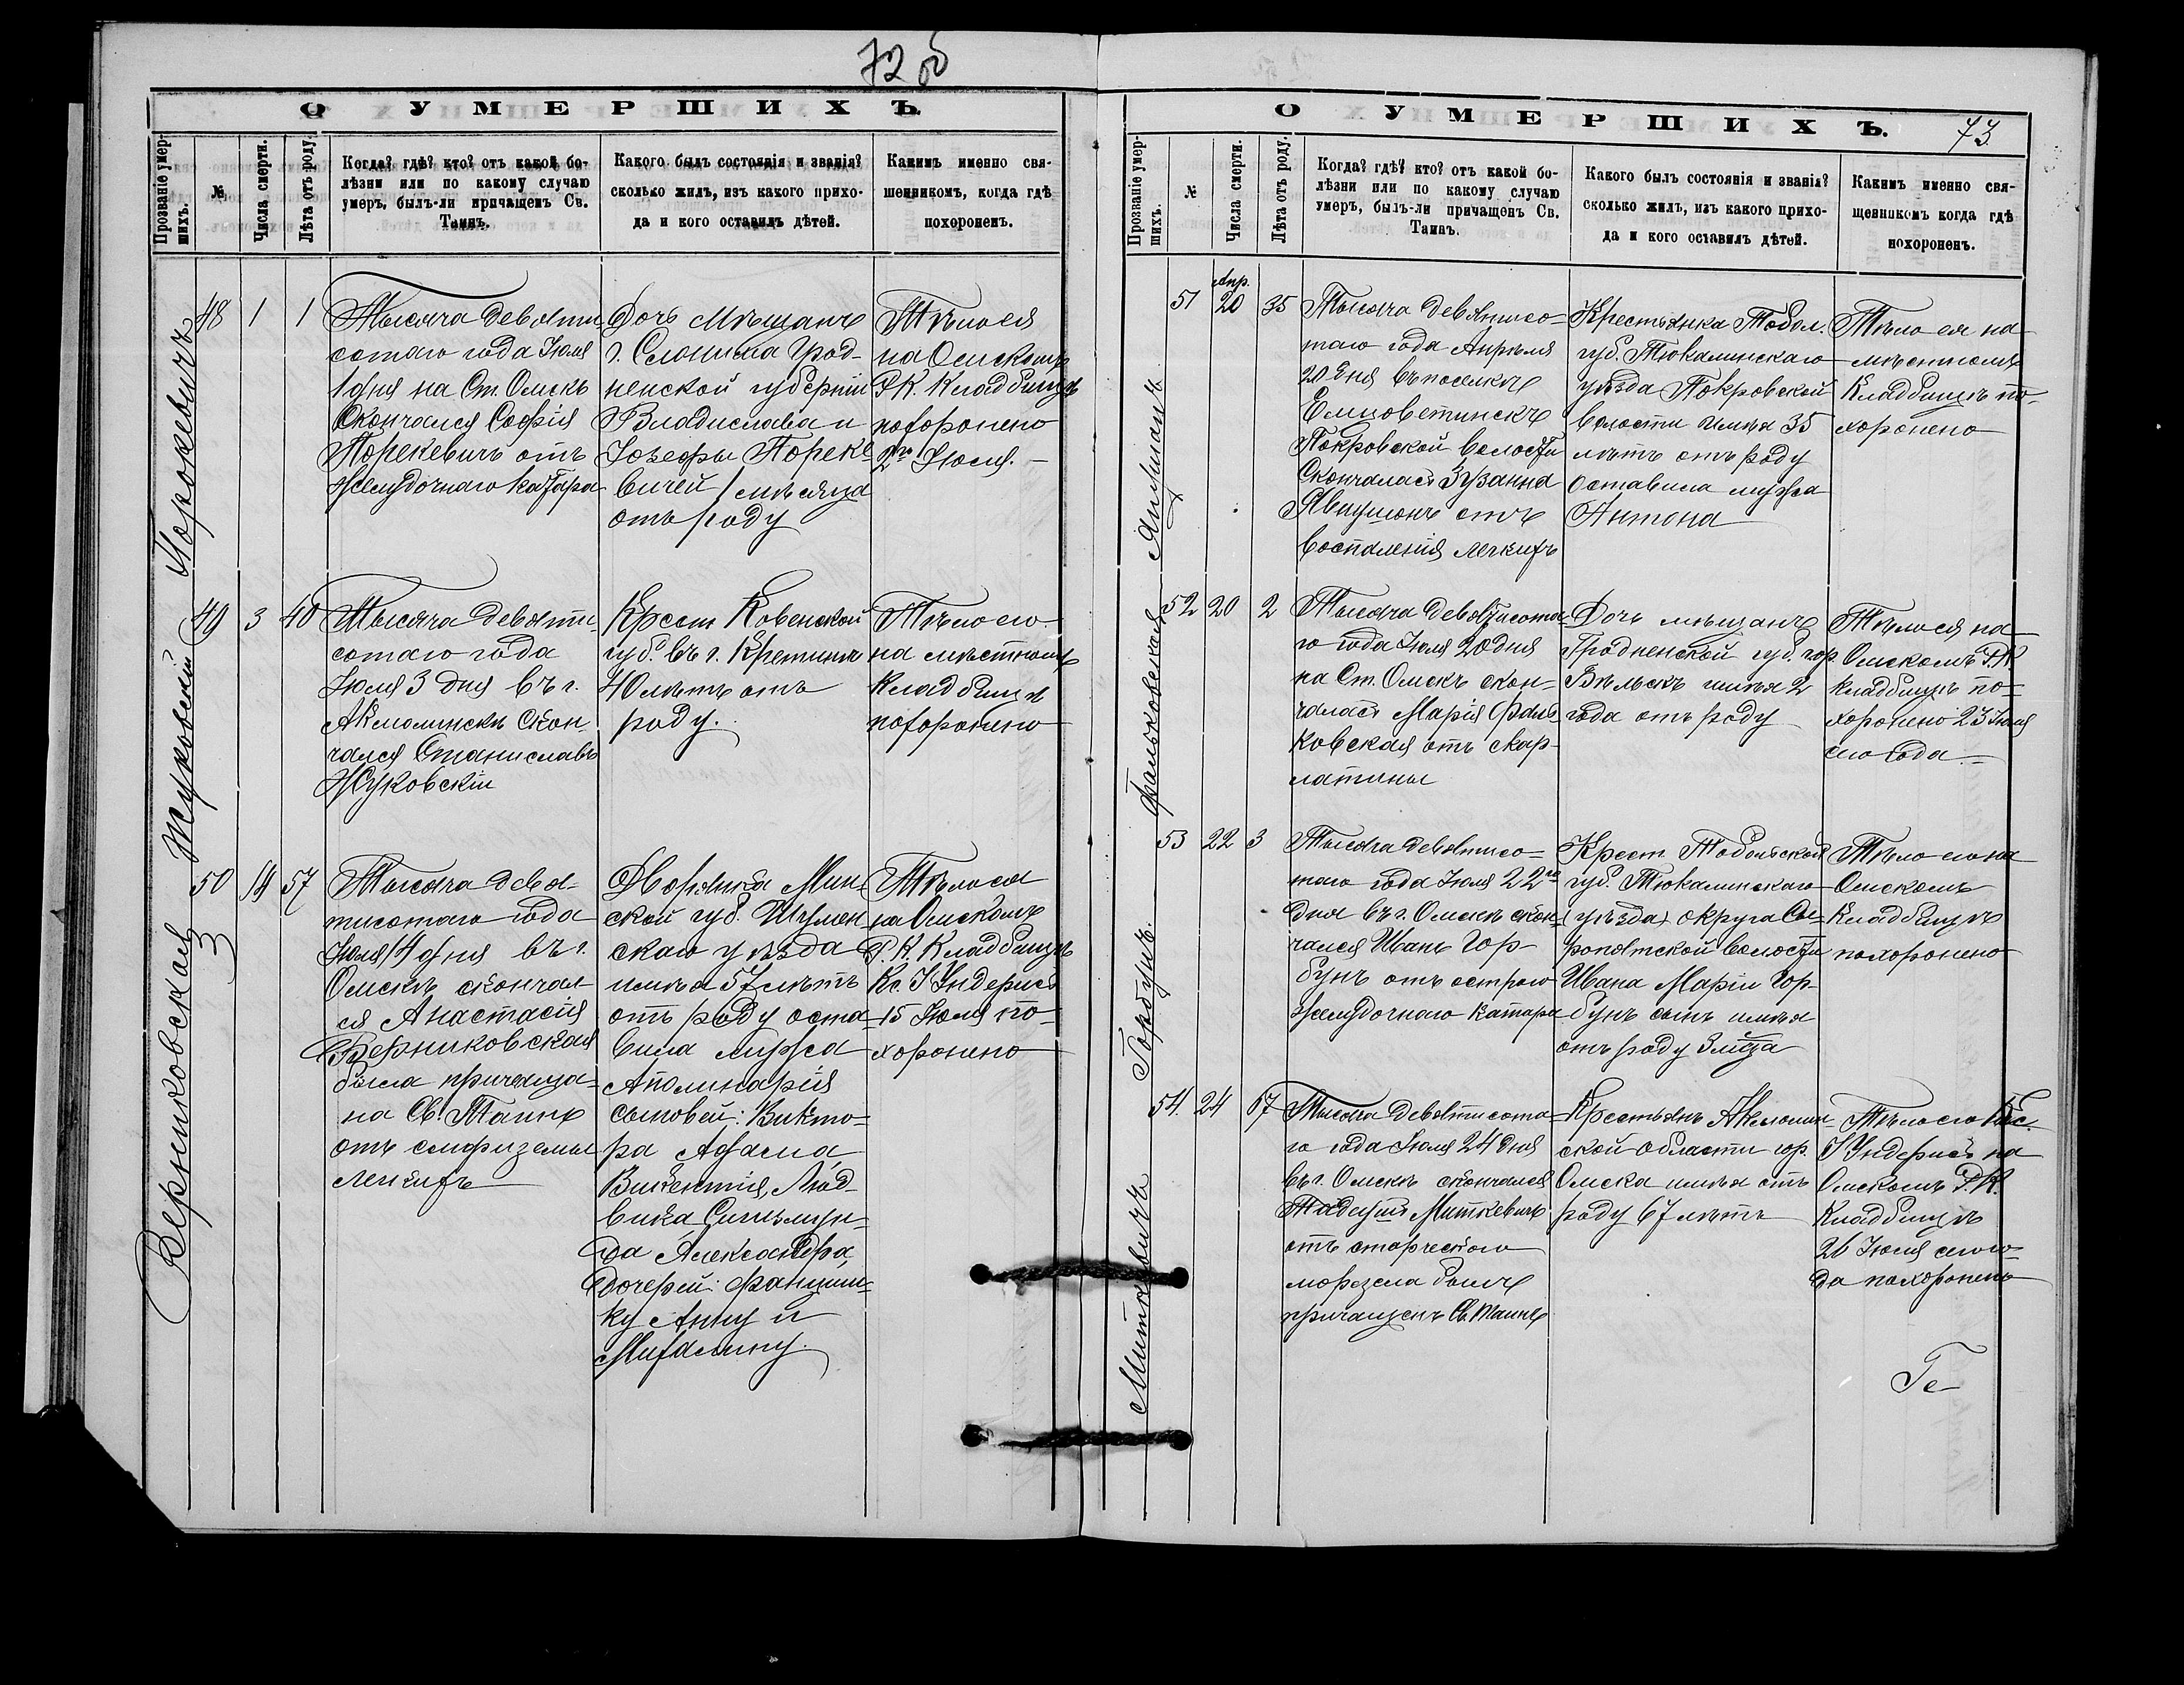 72 об
О УМЕРШИХЪ.
Прозваніе умер-
шихъ.
№
Числа смерти.
Лѣта отъ роду.
Когда? гдѣ? кто? отъ какой бо-
лѣзни или по какому случаю
умеръ, былъ-ли причащенъ Св.
Таинъ.
Какого былъ состоянія и званія?
сколько жилъ, изъ какого прихо-
да и кого оставилъ дѣтей.
Какимъ именно свя-
щенникомъ, когда гдѣ
похороненъ.
48 1 1
Тысяча девяти
сотаго года Іюля
1 дня на Ст. Омскъ
Скончался Софія
Порекевичъ отъ
желудочнаго катара
Дочь Мѣщанъ
г. Слонима Грод-
ненской губерніи
Владислава и
Іозефы Пореке-
вичей 1 мѣсяца
отъ роду
Тѣло ея
на Омскомъ
Р.К. Кладбищѣ
похоронено
2го Іюля.
Жуковскій
49 3 40
Тысяча девяти-
сотаго года
Іюля 3 дня въ г.
Акмолинскѣ скон-
чался Станиславъ
Жуковскій
Крест Ковенской
губ. въ г. Кретинга
40 лѣтъ отъ
роду.
Тѣло его
на мѣстномъ
Кладбищѣ
похоронено
Верниковская
50 14 57
Тысяча девя-
тисотаго года
Іюля 14 дня въ г.
Омскѣ скончал
ся Анастасія
Верниковская
была причаща-
на Св. Таинъ
отъ емфиземы
легкихъ
Дворянка Мин-
ской губ. Игумен
скаго уѣзда
имѣя 57 лѣтъ
отъ роду оста-
вила мужа
Аполинарія
сыновей: Викто-
ра Адама
Викентія, Люд-
вика
да Александра,
дочерей: Францишк-
ку Анну и
Михалину.
Тѣло ея
на Омскомъ
Р.К. Кладбищѣ
Кс. І Ундерисъ
15 Іюля по-
хоронено
73.
О УМЕРШИХЪ.
Прозваніе умер-
шихъ.
№
Числа смерти.
Лѣта отъ роду.
Когда? гдѣ? кто? отъ какой бо-
лѣзни или по какому случаю
умеръ, былъ-ли причащенъ Св.
Таинъ.
Какого былъ состоянія и званія?
сколько жилъ, изъ какого прихо-
да и кого оставилъ дѣтей.
Какимъ именно свя-
щенникомъ когда гдѣ
похороненъ.
51 Апр. 20 35
Тысяча девятисо-
таго года Апрѣля
20 дня въ поселкѣ
Покровской волости
Скончалась Зузанна
отъ
воспаленія легкихъ
Крестьянка Тобол.
губ. Тюкалинскаго
уѣзда Покровской
волости имѣя 35
лѣтъ отъ роду
Оставила мужа
Антона
Тѣло ея на
мѣстномъ
Кладбищѣ по-
хоронено
Фальковская
52 20 2
Тысяча девятисота-
го года Іюля 20 дня
на Ст. Омскъ скон-
чалась Марія Фаль-
ковская отъ скар-
латины
Дочь мѣщанъ
Гродненской губ. гор.
Бѣльскъ имѣя 2
года отъ роду
Тѣло ея на
Омскомъ Р.К
кладбищѣ по-
хоронено 23 Іюля
сего года.
Горбунъ
53 22 3
Тысяча девятисо-
таго года Іюля 22го
дня въ г. Омскѣ скон-
чался Иванъ Гор-
бунъ отъ остраго
желудочнаго катара
Крест. Тобольской
губ. Тюкалинскаго
(уѣзда) округа Сы-
ропятской волости
Ивана Маріи Гор-
бунъ сынъ имѣя
отъ роду 3 мѣсца
Тѣло его на
Омскомъ
Кладбищѣ
похоронено
Миткевичъ
54. 24 67
Тысяча девятисота-
го года Іюля 24 дня
въ г. Омскѣ скончался
Тадеушъ Миткевичъ
отъ старческаго
былъ
причащенъ Св. Таинъ
Крестьянъ Акмолин-
ской области гор.
Омска имѣя отъ
роду 67 лѣтъ
Тѣло его Кс.
І Ундерисъ на
Омскомъ Р.К.
Кладбищѣ
26 Іюля сего го-
да похороненъ